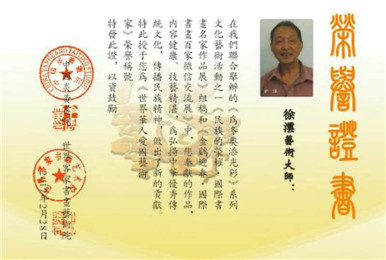 榮譽證書
徐藝術大師：
在我們聯合舉辦的《為冬奧添光彩》系列
文化藝術活動之一《民族的榮耀》國際書
畫名家作品展》組稿和《金鷄迎春》國際
書畫百家微信交流展》中，您奉獻的作品，
内容健康、技藝精湛，為弘揚中華優秀傳
統文化，傳播民族精神，做出了新的貢獻。
特此授于您為《世界華人愛國藝術
家》榮譽稱號。
特發此證，以資鼓勵
中炎黃書
世界書畫藝術院
年2月28日